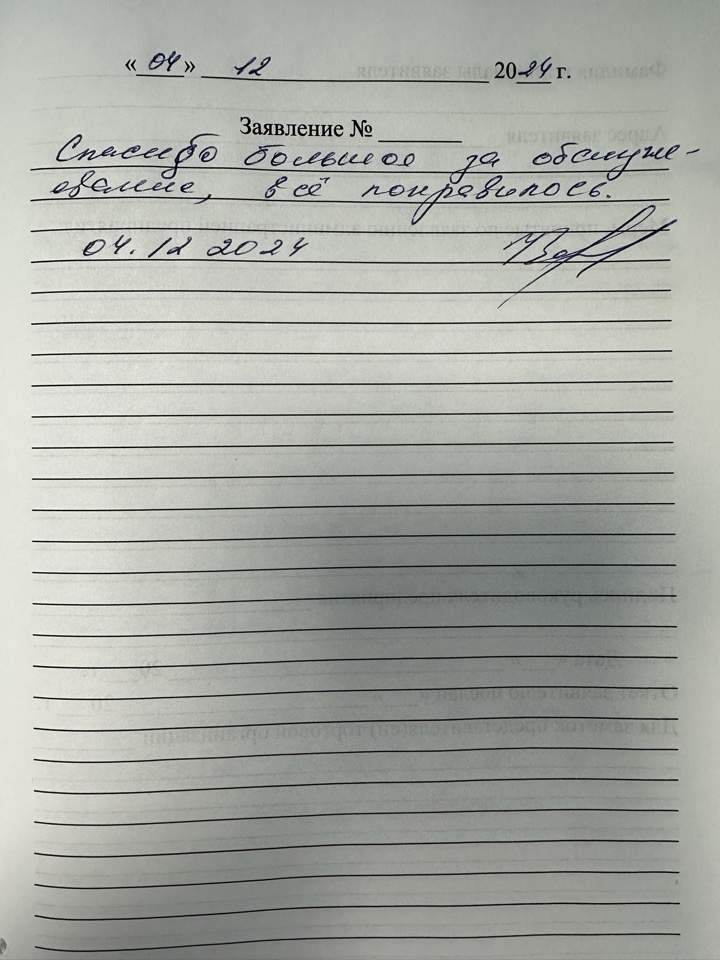 « 04 » 12 2024 г.
Заявление №
Спасибо большое за обслуже-
ование, всё понравилось.
04.12 2024